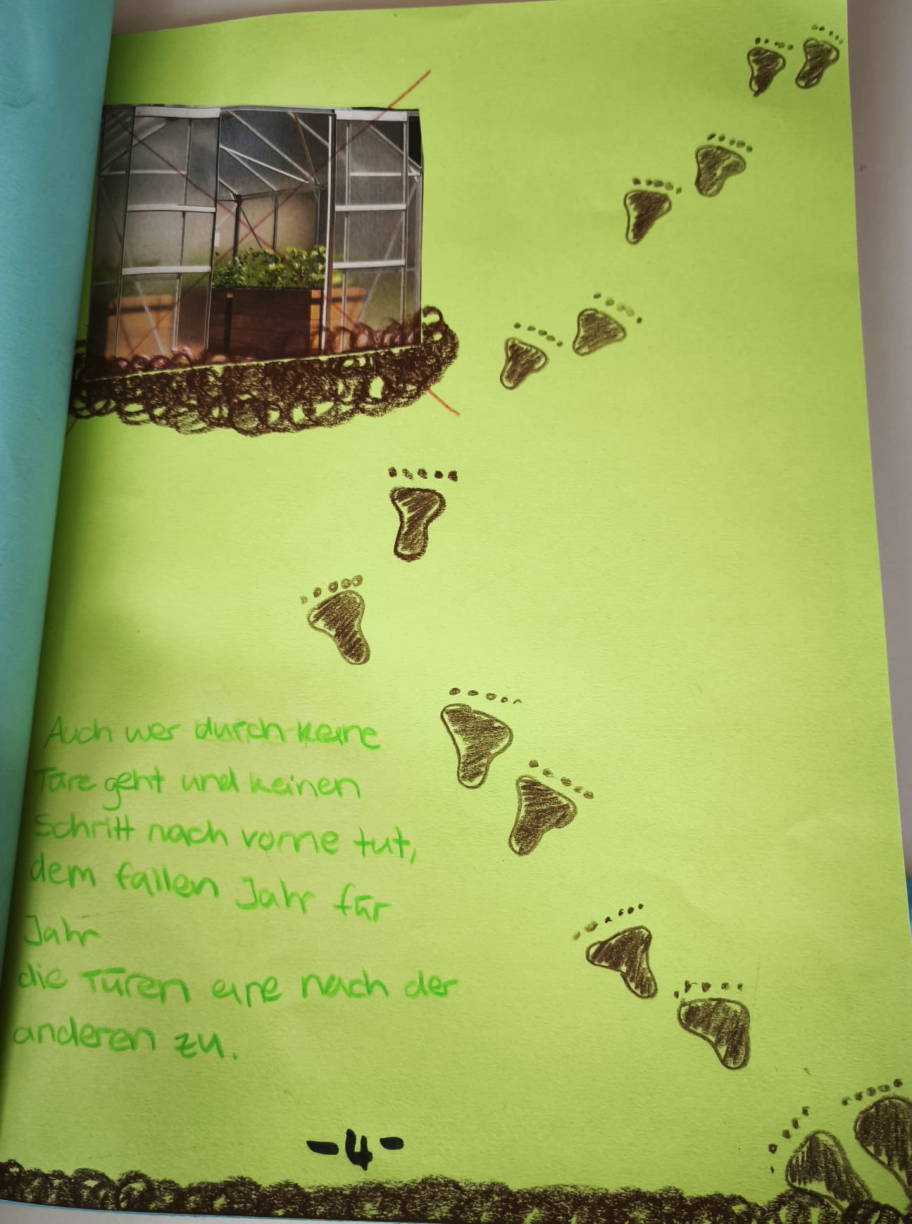 Auch wer durch keine
Türe geht und keinen
Schritt nach vorne tut,
dem fallen Jahr für
Jahr
die Türen eine nach der
anderen zu.
-4-